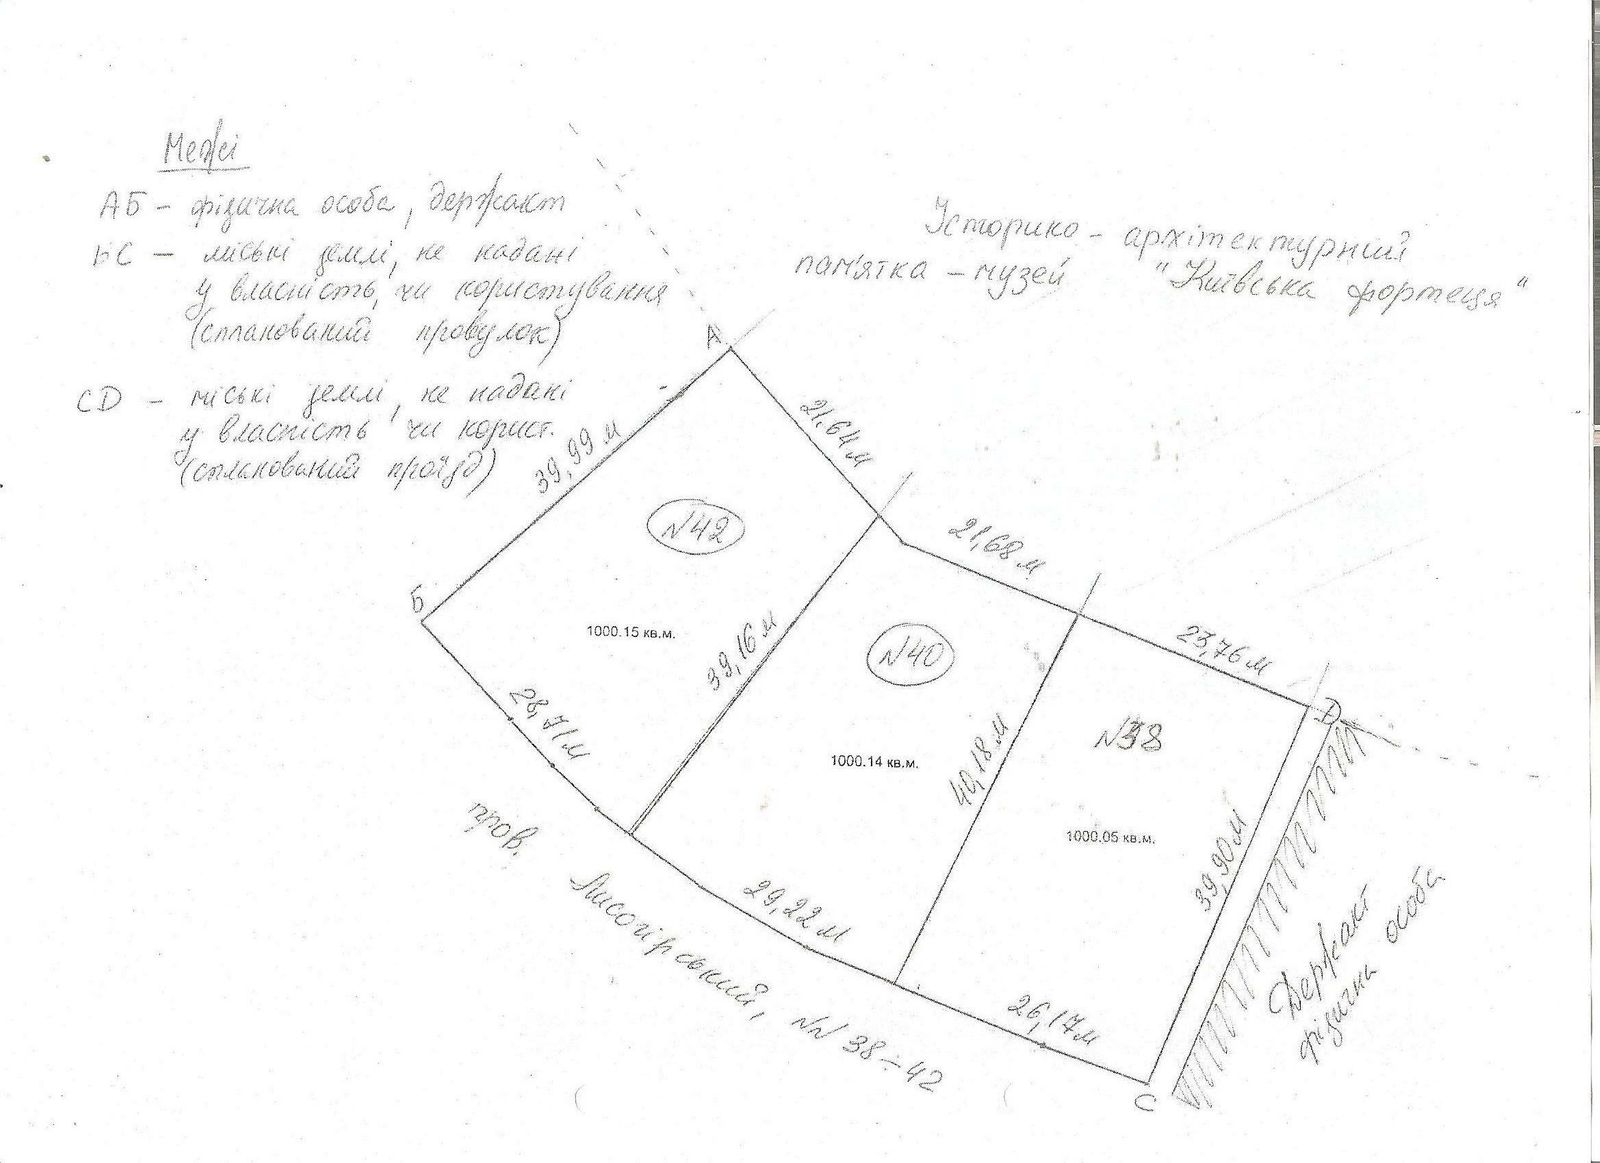 Межі
АБ - фізична особа, держакт
БС - міські землі, не надані
у власність, чи користування
(спланований провулок)
CD - міські землі, не надані
у власність чи корист.
(спланований проїзд)
Історико - архітектурний
пам'ятка - музей "Київська фортеця"
А
21,64 м
39,99 м
N42
21,68 м
Б
1000.15 кв.м.
39,16 м
N40
23,76 м
D
28,71 м
1000.14 кв.м.
40,18 м
N38
1000.05 кв.м.
39,90 м
пров. Лисогірський, NN 38÷42
29,22 м
26,17 м
С
Держакт
фізична особа